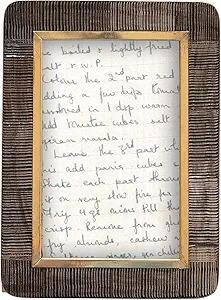 boiled & lightly fried
salt & w.P.
Colour the 3rd part red
adding a few drps tomat
in 1 dsp warm
Add salt
garam masala.
Leave the 3rd part whi
add panir cubes &
Shake each part throu
it on very slow fire for
Fry 4 oz mins till the
crisp. Remove from gh
fry almonds cashew